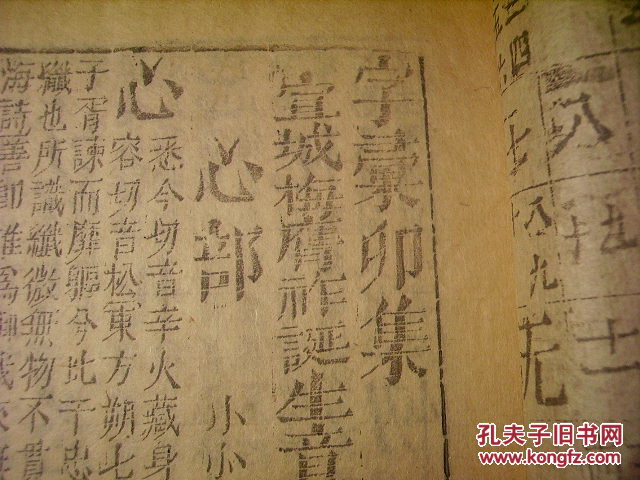 字彙卯集
宣城梅膺祚誕生音
心部 小小
心 悉今切音辛火藏身
容切音松東方朔七
子胥諫而靡軀兮比干忠
纖也所識纖微無物不貫
海詩善卽維爲
三四
七八九
八 九 十
孔夫子旧书网
www.kongfz.com